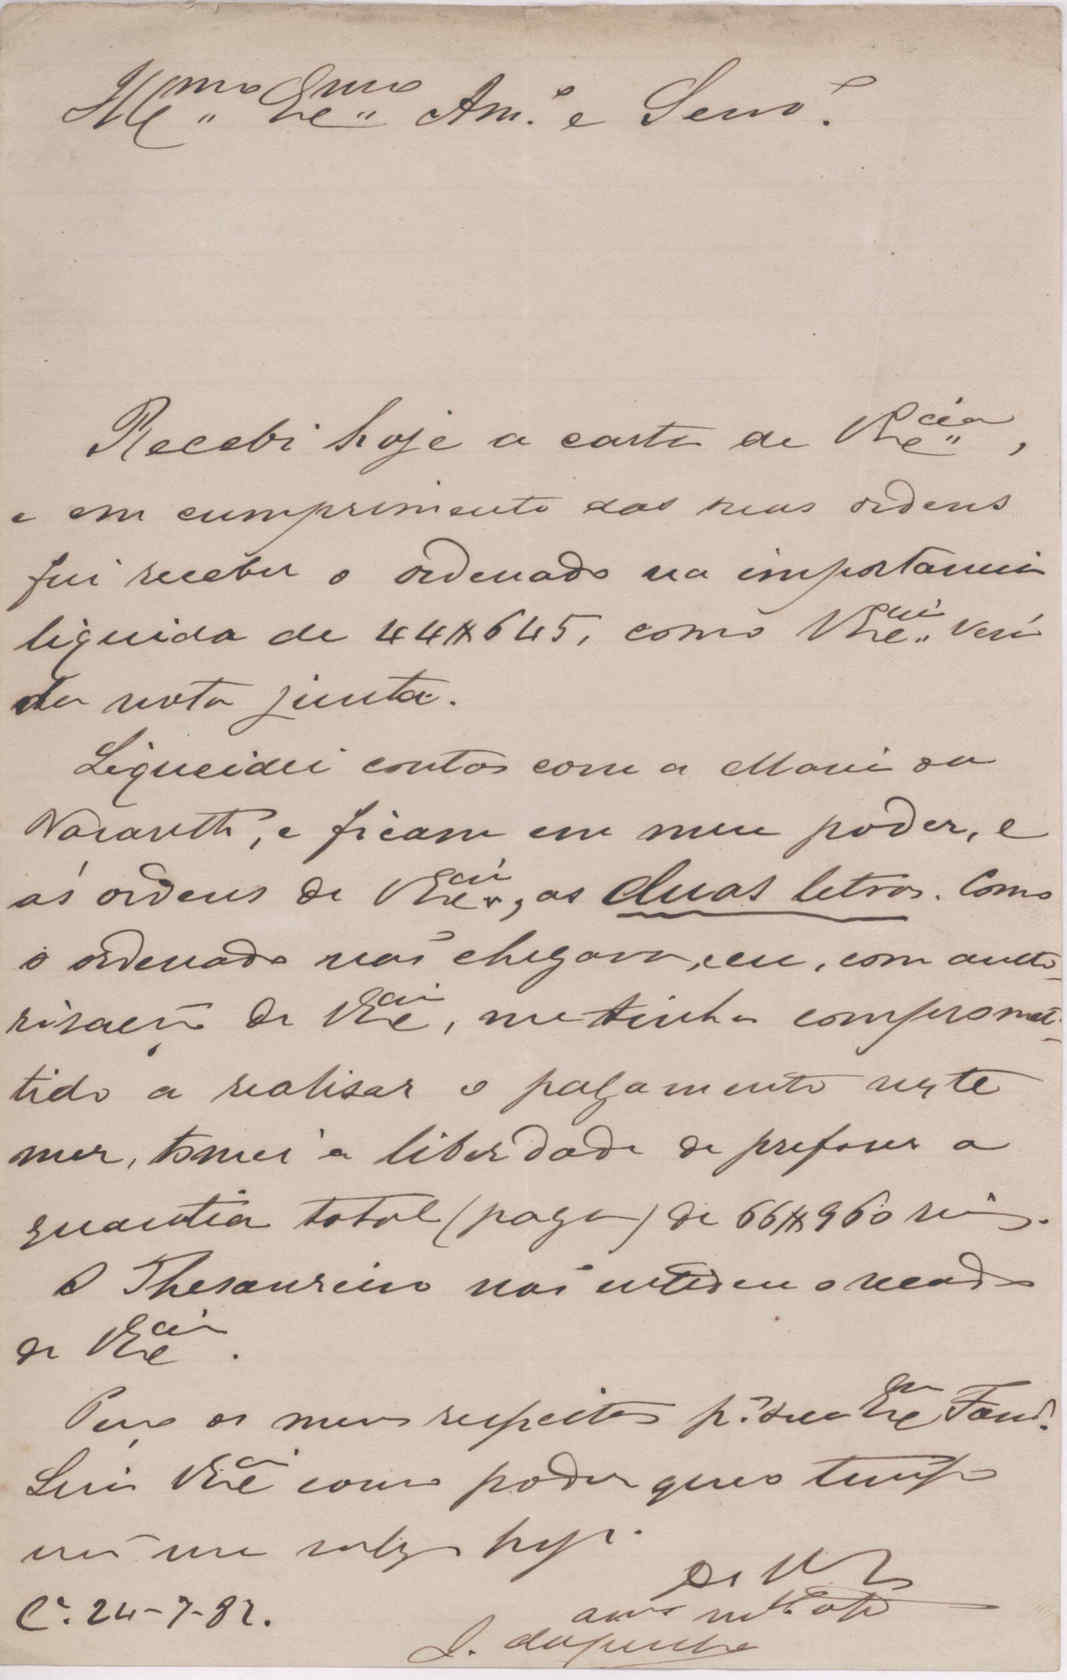 Ill.mo Ex.mo Am.o e Senr.
Recebi hoje a carta de V Ex.cia,
e em cumprimento das suas ordens
fui receber o ordenado na importancia
liquida de 44$645, como V Ex.cia verá
da nota junta.
Liquidei contas com a Maria da
Nazareth, e ficam em meu poder, e
ás ordens de V Ex.cia, as duas letras. Como
o ordenado não chegava, eu, com auto-
risação de V Ex.cia, me tinha compromet-
tido a realisar o pagamento neste
mez, tomei a liberdade de prefazer a
quantia total (paga) de 66$960 reis.
O Thesoureiro não entendeu o recado
de V Ex.cia.
Peço os meus respeitos p.a sua Ex.ma Fam.
V Ex.cia como poder que o tempo
não me hoje.
C.a 24-7-82.
De V Ex.
am.o
J.